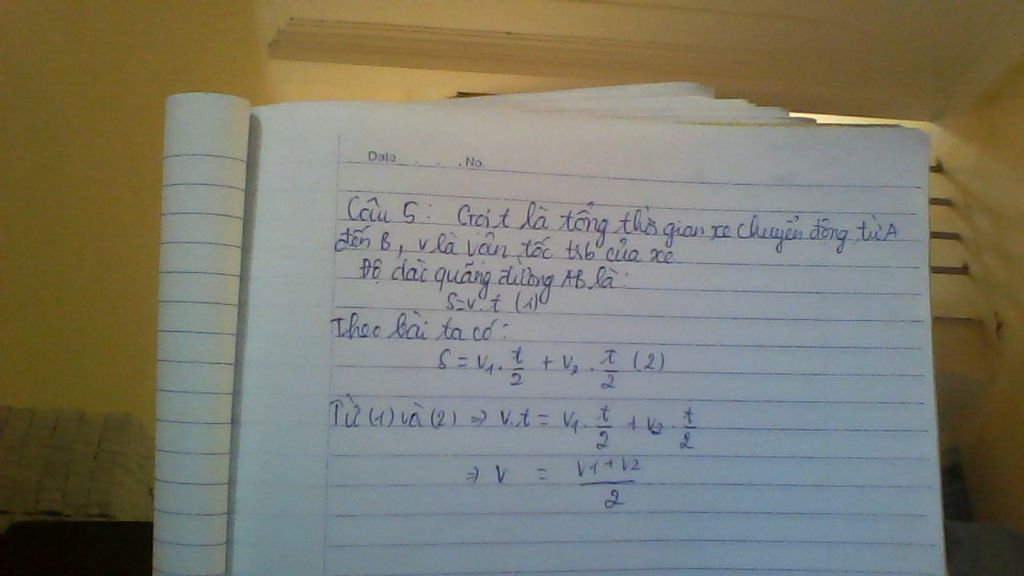 Date . . . No
Câu 5: Gọi t là tổng thời gian xe chuyển động từ A
đến B, v là vận tốc trb của xe
Độ dài quãng đường AB là:
S=v.t (1)
Theo bài ta có:
S = v₁. t/2 + v₂. t/2 (2)
Từ (1) và (2) ⇒ v.t = v₁. t/2 + v₂. t/2
⇒ v = v1+v2/2